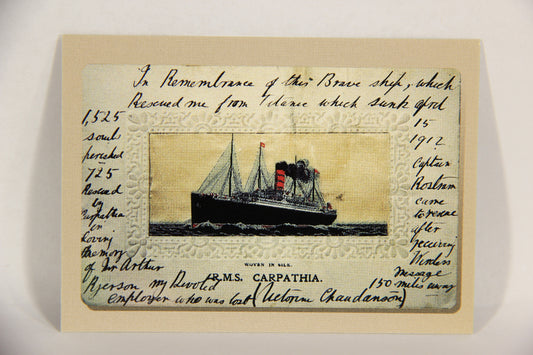 In Remembrance of this Brave ship, which
Rescued me from Titanic which sunk April
15
1912
Captain
Rostram
came
to rescue
after
receiving
Wireless
Message
150 miles away
1,525
souls
perished
725
Rescued
by
Carpathia
in
Loving
Memory
of Mr Arthur
Ryerson my Devoted
employer who was lost (Victorine Chaudanson)
WOVEN IN SILK.
R.M.S. CARPATHIA.